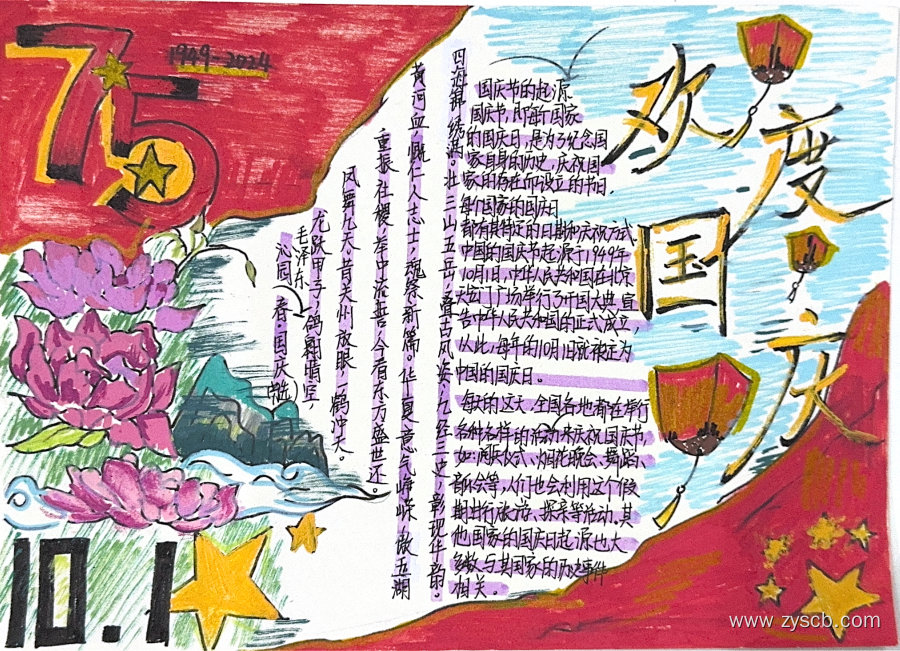 75
1949-2024
欢度国庆
沁园春·国庆
毛泽东
龙跃甲子,鸽翱晴空,
凤舞九天。昔关州放眼,一鹤冲天。
重振社稷,举中流誓。今看东方盛世还。
黄河血,慨仁人志士,魂祭新篇。华夏意气峥嵘,傲五湖
四海锦绣淇。壮三山五岳,叠古风姿,亿经三史,彰现华韵。
国庆节的起源
国庆节,即每个国家
的国庆日,是为了纪念国
家自身的历史,庆祝国
家的存在而设立的节日,
每个国家的国庆日
都有其特定的日期和庆祝方式
中国的国庆节起源于1949年
10月1日,中华人民共和国在北京
天安门广场举行了开国大典,宣
告中华人民共和国的正式成立,
从此,每年的10月1日就被定为
中国的国庆日。
每年的这天,全国各地都在举行
各种各样的活动来庆祝国庆节,
如:阅兵仪式、烟花晚会、舞蹈、
部会等,人们也会利用这个假
期出行旅游、探亲等活动。其
他国家的国庆日起源也大
多数与其国家的历史事件
相关。
10.1
www.zyscb.com